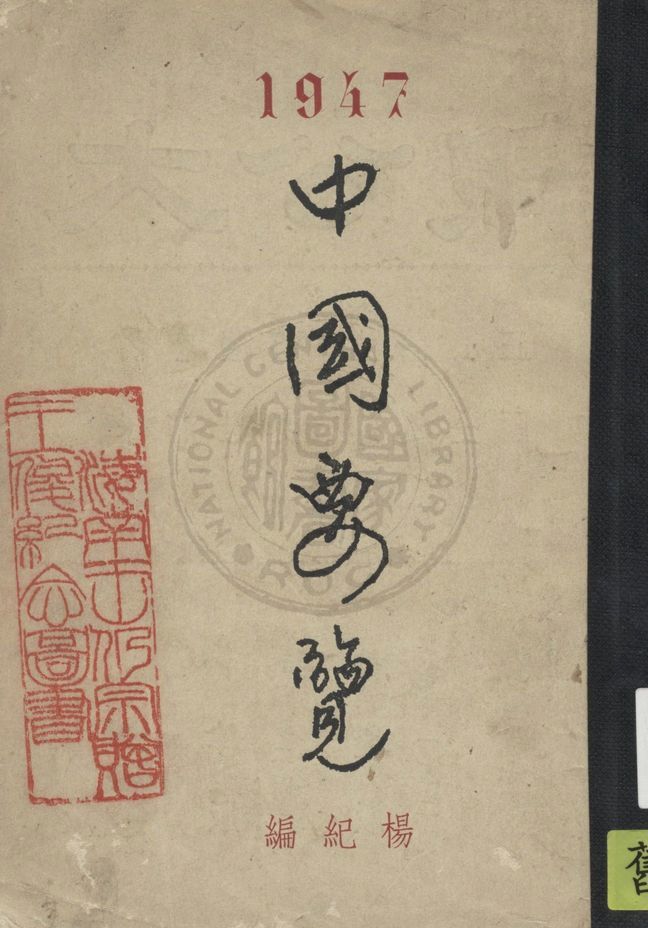 1947
中國要覽
楊紀編
NATIONAL CENTRAL LIBRARY
國家圖書館
R.O.C.
舊